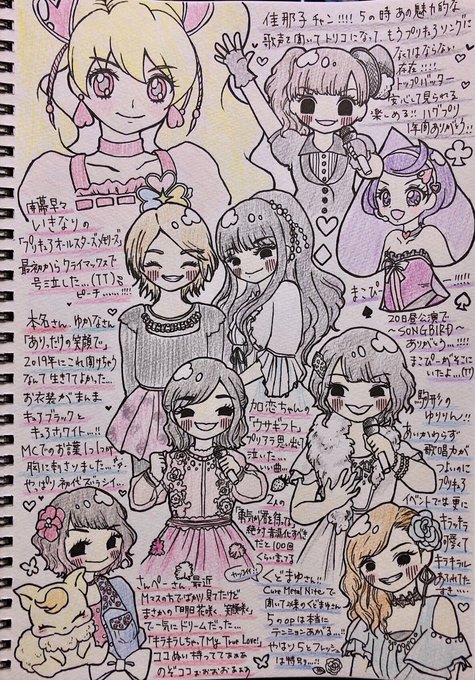 佳那子チャン!!!! 5の時あの魅力的な
歌声を聞いてトリコになって、もうプリキュアソングに
なくてはならない
存在!!!!
トップバッター
安心して見られる
楽しめる!! ハグプリ
1年間ありがとう
開幕早々
いきなりの
「プリキュアオールスターズメモリーズ」
最初からクライマックスで
号泣した…(TT)
ピーチ……!!!!
まこぴー
20日昼公演で
〜SONGBIRD〜
ありがとう…!!!!
まこぴーがそこに
いたよ…(TT)
本名さん、ゆかなさん
「ありったけの笑顔で」
2019年にこれ聞けちゃう
なんて生きててよかった…
お衣装がまんま
キュアブラックと
キュアホワイト…!!
MCでのお言葉1つ1つが
胸に刺さりました…
やっぱり初代ズラシイ…
加恋ちゃんの
「ウサギフト」
プリアラ思い出して
泣いた…
いい曲…
駒形の
ゆりりん!!
あいかわらず
歌唱力が
つよいのに
プリキュア
イベントでは更に
キラッキラ
可愛くて
キラキラル
あふれてた
すき…
2人の
勇気が君を待ってる
絶対音源化すべき
だと100回
くらい言ってる
さんぺーさん最近
Mステのもちでばかり見てたけど
まさかの「明日花咲く。笑顔咲く」
で一気にドリームだった…
「キラキラしちゃって My True Love!」
ココぬい持っててぁぁぁ
のぞココぉぉおおぉぉ
くどまゆさん!
Cure Metal Niteで
聞いて以来のくどまゆさん
5のopは本当に
テンションあがる…!!
やはり5とフレッシュ
は特別…!!